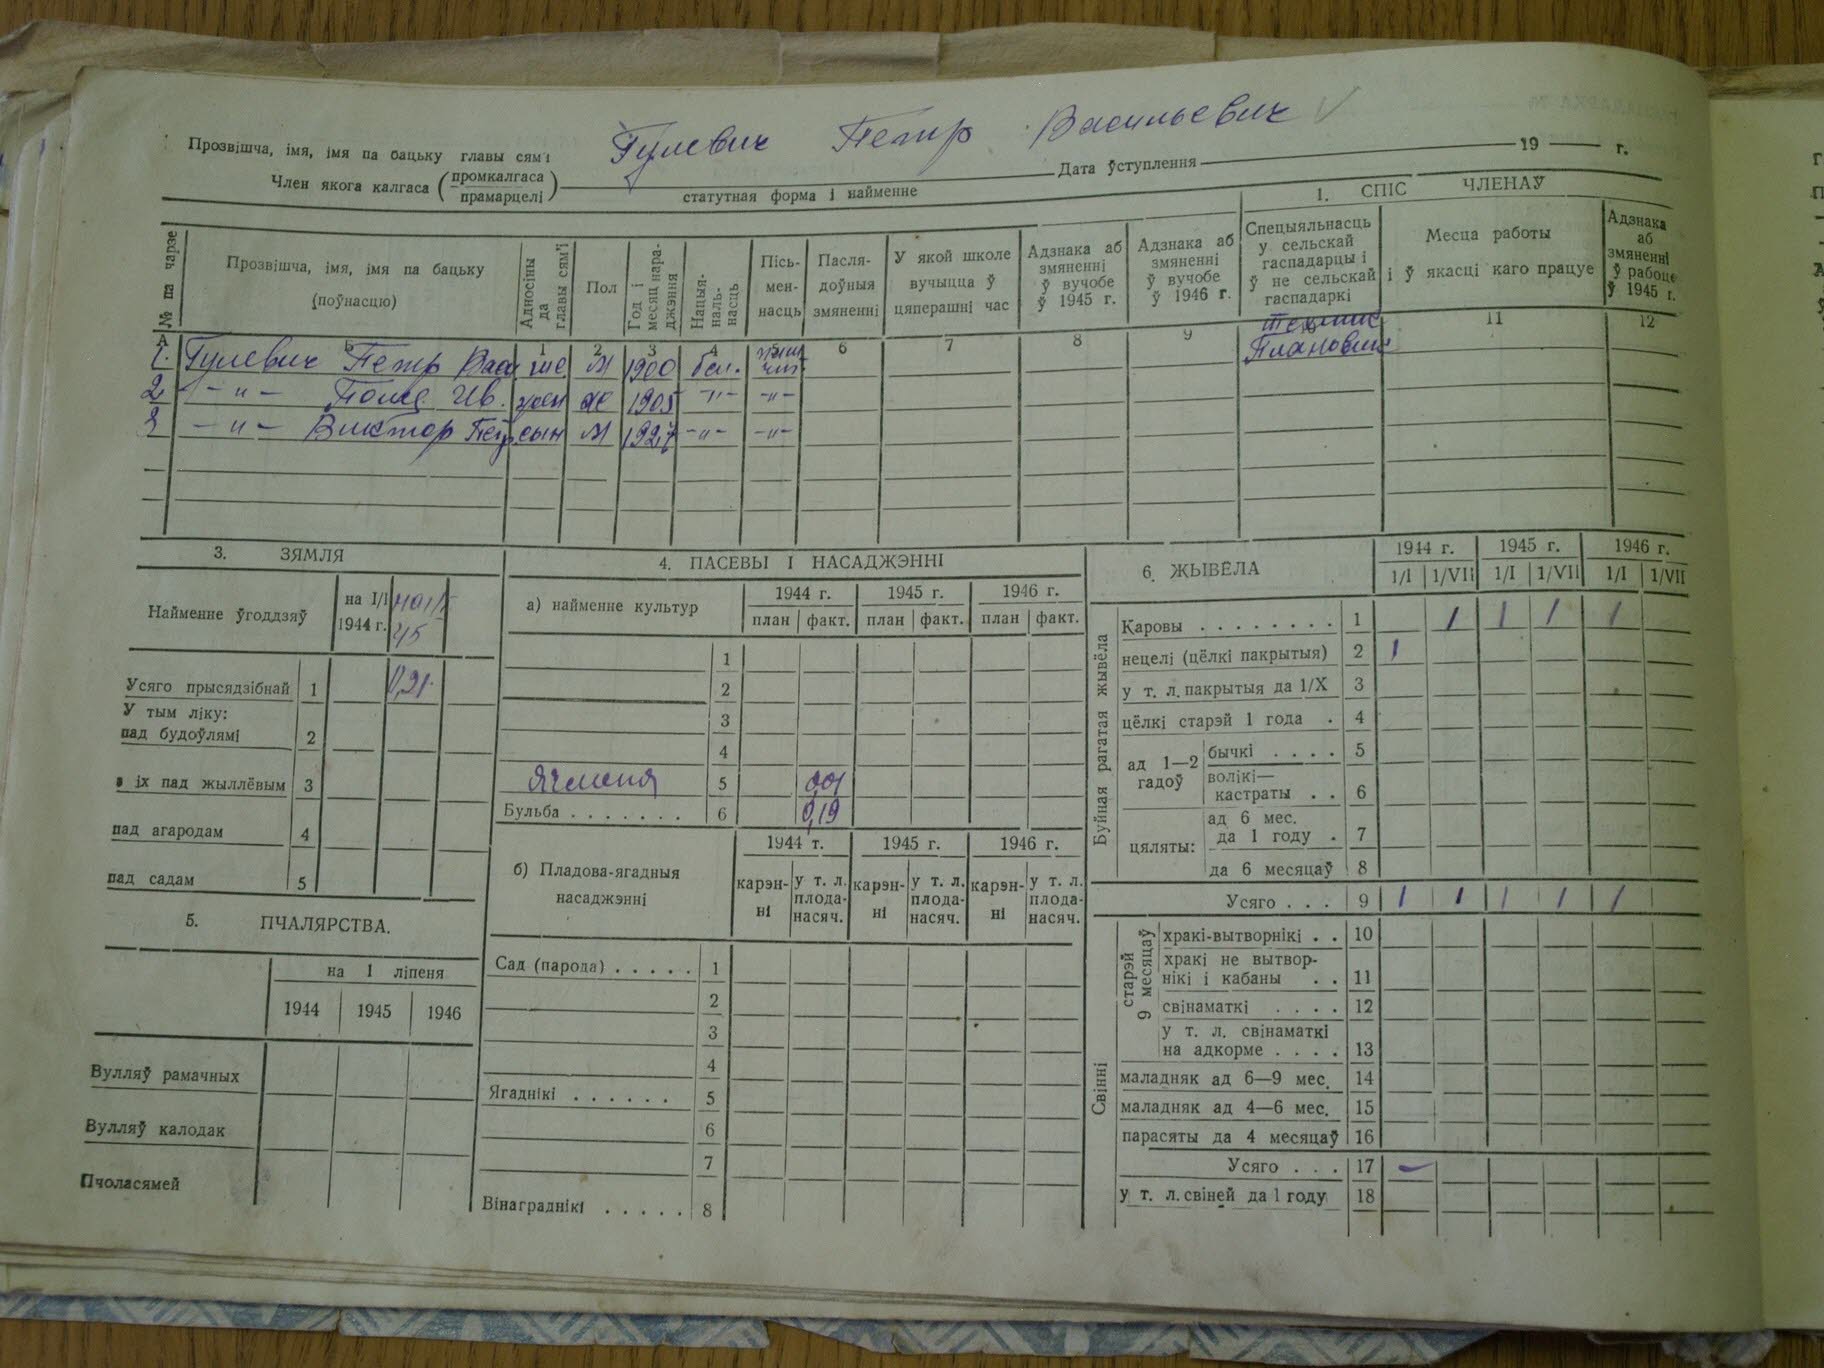 Гулевич Петр Васильевич
Прозвішча, імя, імя па бацьку главы сям'і
Дата ўступлення 19 г.
Член якога калгаса (промкалгаса прамарцелі)
статутная форма і найменне
1. СПІС ЧЛЕНАЎ
№ па чарзе
Прозвішча, імя, імя па бацьку (поўнасцю)
Адносіны да главы сям'і
Пол
Год і месяц нараджэння
Нацыянальнасць
Пісьменнасць
Пасля-доўныя змяненні
У якой школе вучыцца ў цяперашні час
Адзнака аб змяненні ў вучобе ў 1945 г.
Адзнака аб змяненні ў вучобе ў 1946 г.
Спецыяльнасць у сельскай гаспадарцы і ў не сельскай гаспадаркі
Месца работы і ў якасці каго працуе
Адзнака аб змяненні ў рабоце ў 1945 г.
А Б 1 2 3 4 5 6 7 8 9 10 11 12
1. Гулевич Петр Вас М 1900 бел. техник Плановик
2 -"- Ив. жен ж 1905 -"- -"-
3 -"- Виктор Пет сын М 1927 -"- -"-
3. ЗЯМЛЯ
Найменне ўгоддзяў
на I/I 1944 г.
на I/I 45
Усяго прысядзібнай 1 0,21
У тым ліку:
пад будоўлямі 2
з іх пад жыллёвым 3
пад агародам 4
пад садам 5
5. ПЧАЛЯРСТВА.
на 1 ліпеня
1944 1945 1946
Вулляў рамачных
Вулляў калодак
Пчоласямей
4. ПАСЕВЫ І НАСАДЖЭННІ
а) найменне культур
1944 г. 1945 г. 1946 г.
план факт. план факт. план факт.
1
2
3
4
Ячменя 5 0,01
Бульба . . . . . . . 6 0,19
б) Пладова-ягадныя насаджэнні
1944 т. 1945 г. 1946 г.
карэн-ні у т. л. плода-насяч. карэн-ні у т. л. плода-насяч. карэн-ні у т. л. плода-насяч.
Сад (парода) . . . . . 1
2
3
4
Ягаднікі . . . . . . 5
6
7
Вінаграднікі . . . . . 8
6. ЖЫВЁЛА
1944 г. 1945 г. 1946 г.
1/I 1/VII 1/I 1/VII 1/I 1/VII
Буйная рагатая жывёла
Каровы . . . . . . . . 1 1 1 1 1
нецелі (цёлкі пакрытыя) 2 1
у т. л. пакрытыя да 1/X 3
цёлкі старэй 1 года . 4
ад 1—2 гадоў
бычкі . . . . 5
волікі—кастраты . . 6
цяляты:
ад 6 мес. да 1 году . 7
да 6 месяцаў 8
Усяго . . . 9 1 1 1 1 1
Свінні
старэй 9 месяцаў
хракі-вытворнікі . . 10
хракі не вытвор-нікі і кабаны . . 11
свінаматкі . . . . 12
у т. л. свінаматкі на адкорме . . . . 13
маладняк ад 6—9 мес. 14
маладняк ад 4—6 мес. 15
парасяты да 4 месяцаў 16
Усяго . . . 17 –
у т. л. свіней да 1 году 18